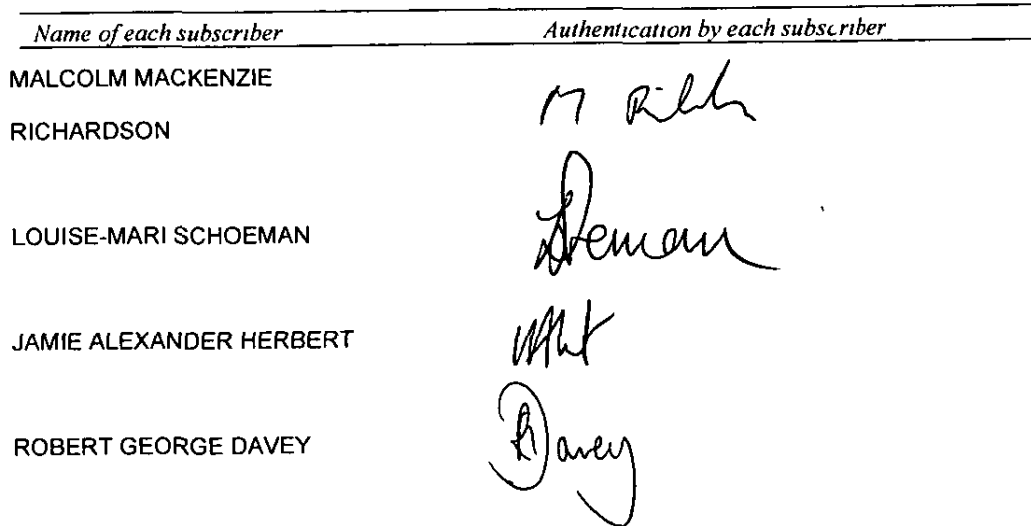 Name of each subscriber Authentication by each subscriber
MALCOLM MACKENZIE
RICHARDSON
M
LOUISE-MARI SCHOEMAN
JAMIE ALEXANDER HERBERT
ROBERT GEORGE DAVEY
R Davey